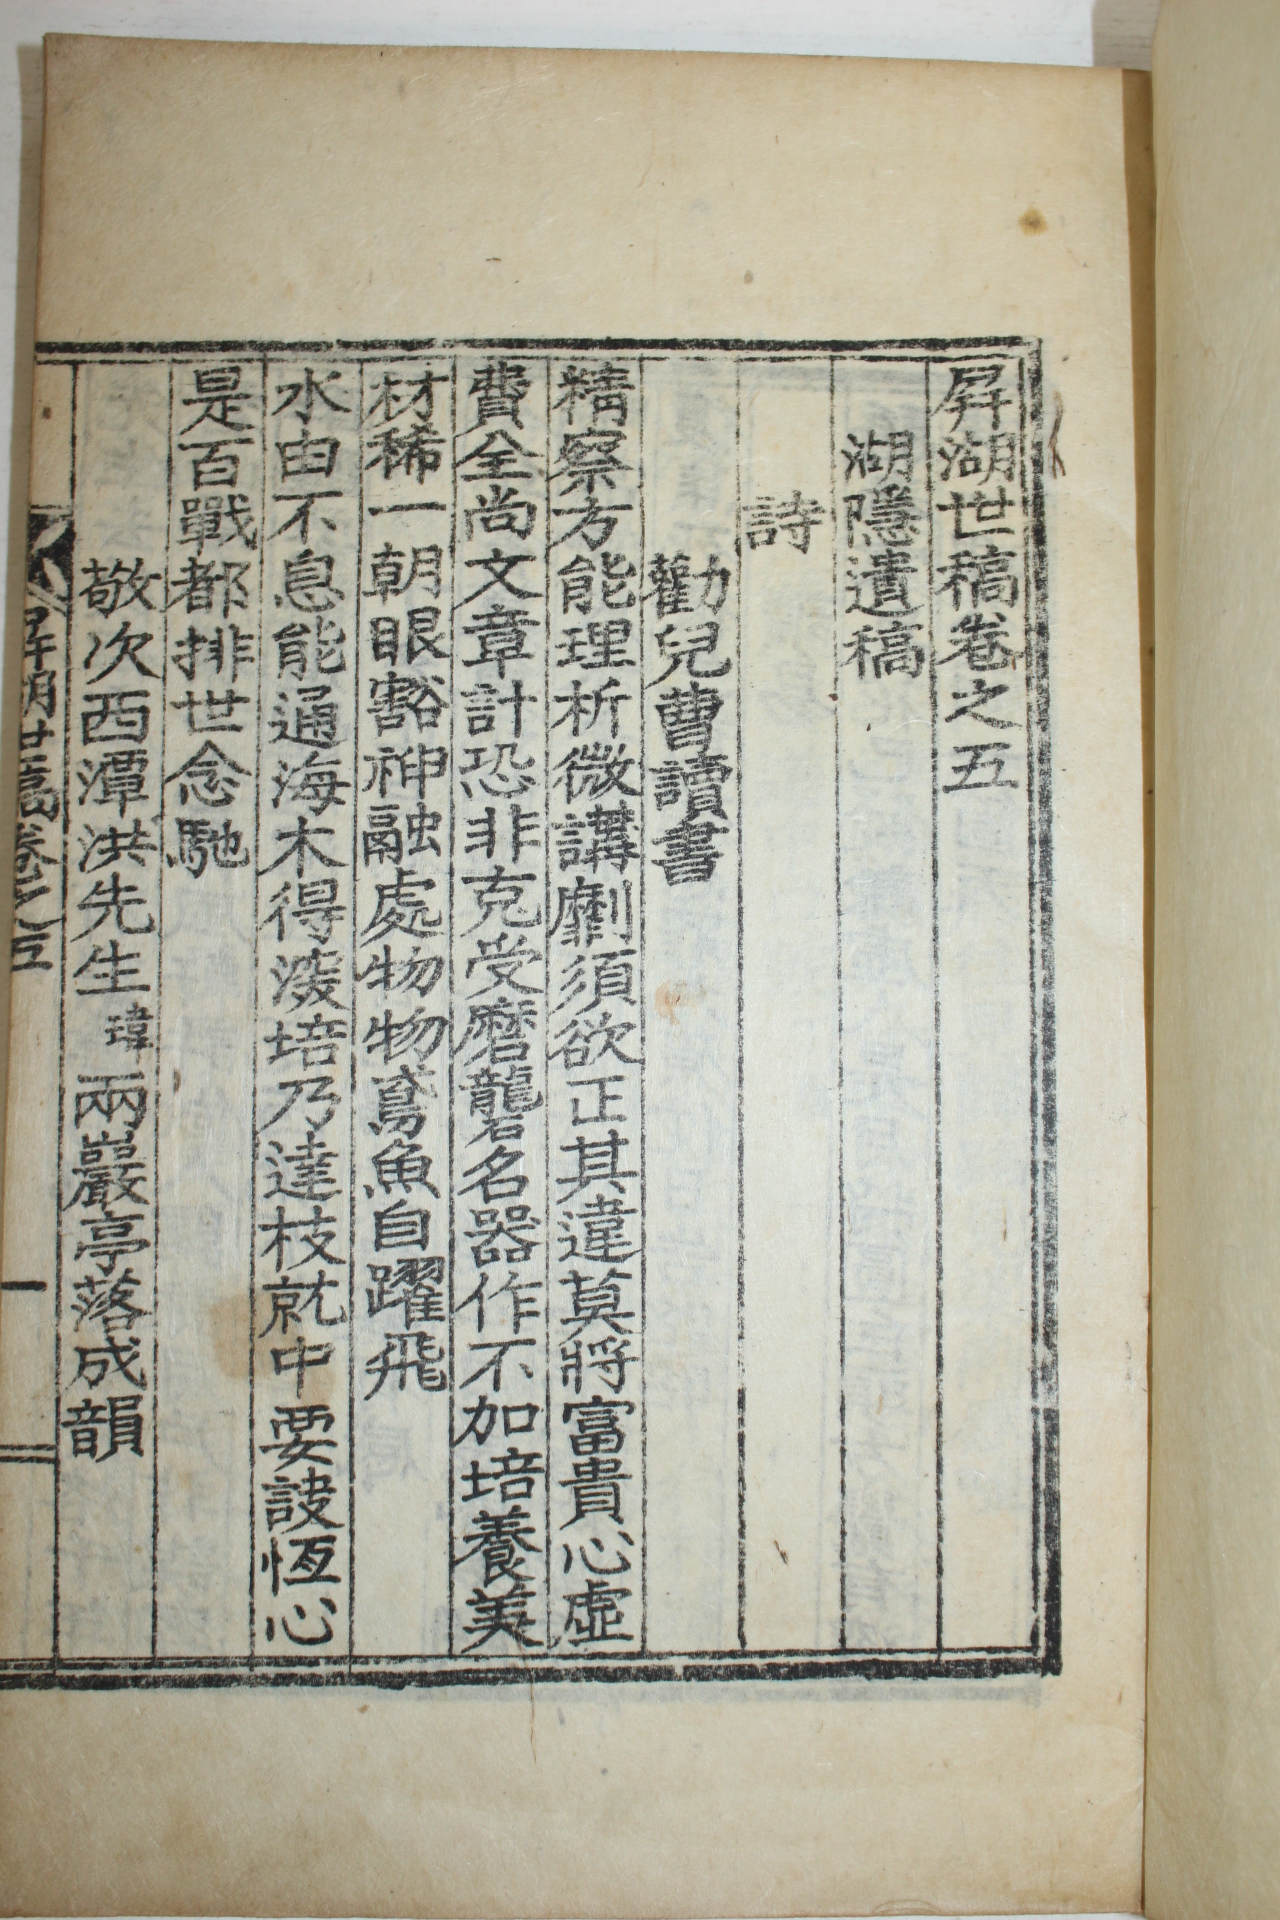 屛湖世稿卷之五
湖隱遺稿
詩
勸兒曹讀書
精察方能理析微講劘須欲正其違莫將富貴心虛
費全尚文章計恐非克受磨礲名器作不加培養美
材稀一朝眼豁神融處物物鳶魚自躍飛
水由不息能通海木得深培乃達枝就中要諼恆心
是百戰都排世念馳
敬次西潭洪先生瑋兩巖亭落成韻
屛湖世稿卷之五
一